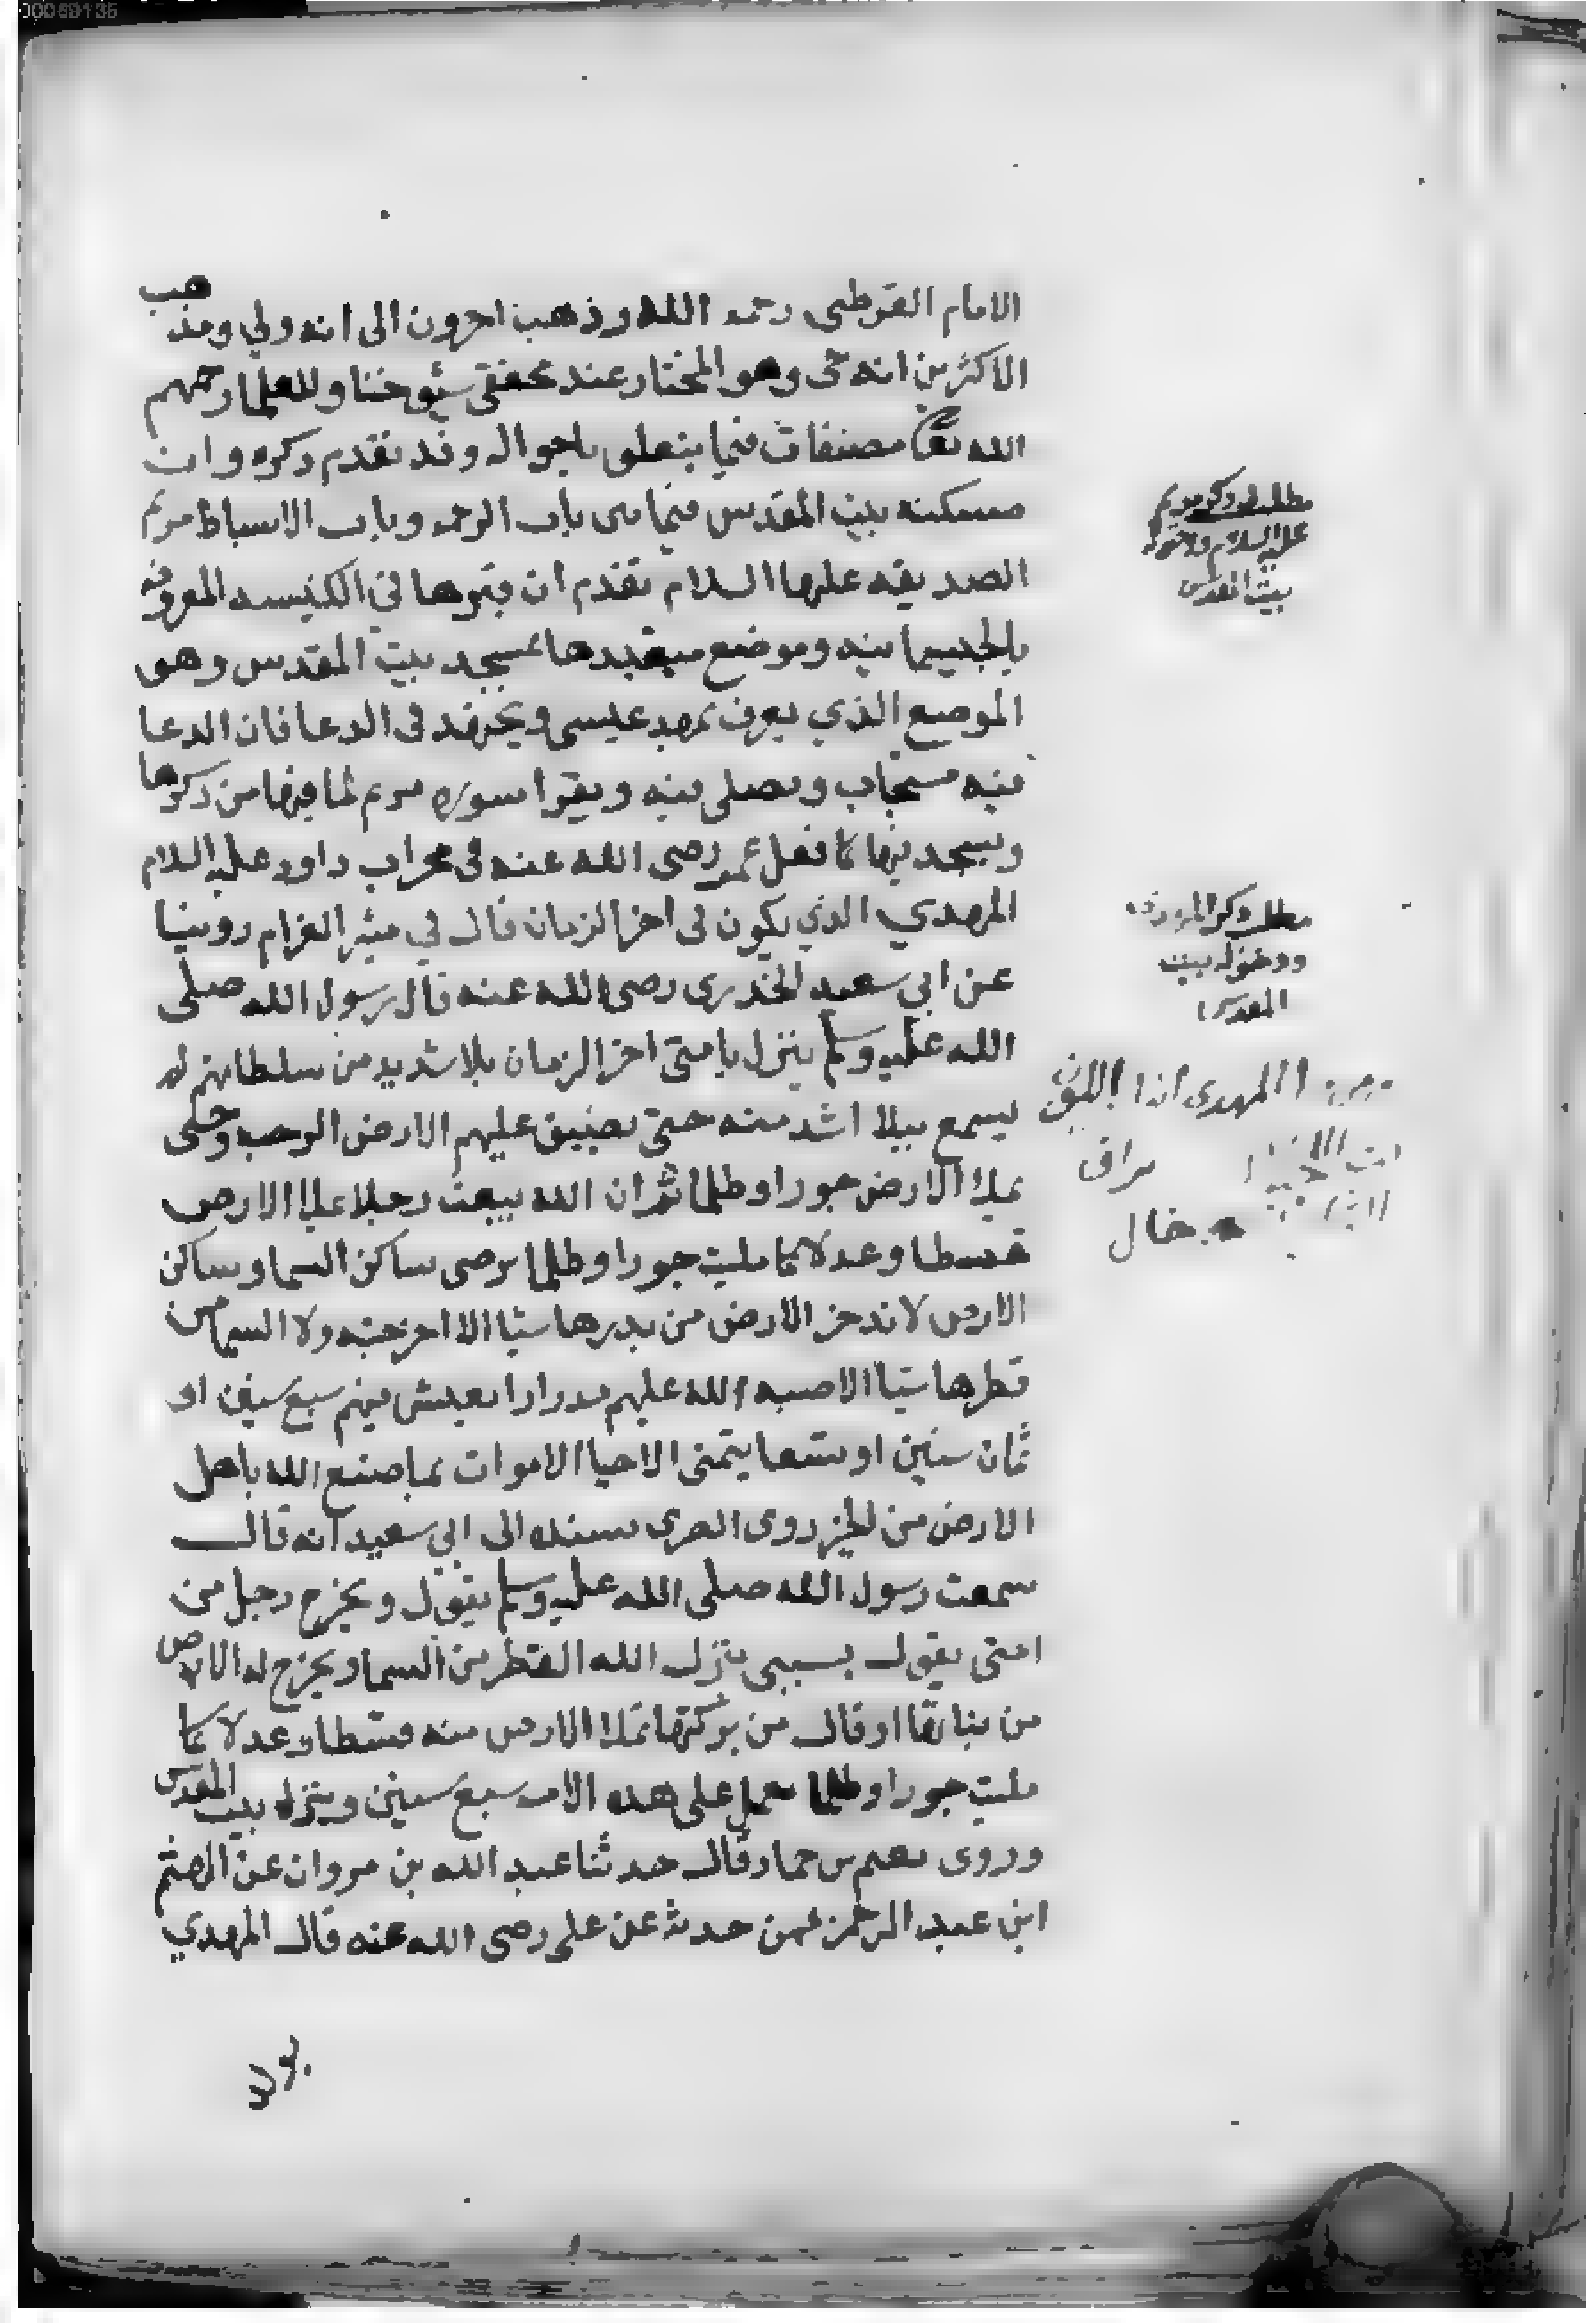 الامام القرطبى رحمه الله وذهب اخرون الى انه ولي ومذهب
الاكثرين انه حى وهو المختار عند محققى شيوخنا وللعلما رحمهم
الله تعا مصنفات فيما يتعلق باحواله وقد تقدم ذكره وان
مسكنه بيت المقدس فيما بين باب الرحمه وباب الاسباط مريم
الصديقه عليها السلام تقدم ان قبرها في الكنيسه المعروفه
بالجسمانيه وموضع متعبدها بمسجد بيت المقدس وهو
الموضع الذي يعرف بمهد عيسى ويجتهد فى الدعا فان الدعا
فيه مستجاب ويصلى فيه ويقرا سوره مريم لما فيها من ذكرها
ويسجد فيها كما فعل عمر رضى الله عنه فى محراب داود عليه السلام
المهدي الذي يكون فى اخر الزمان قال في مثير الغرام روينا
عن ابي سعيد الخدرى رضى الله عنه قال رسول الله صلى
الله عليه وسلم ينزل بامتى اخر الزمان بلا شديد من سلطانهم لم
يسمع ببلا اشد منه حتى تضيق عليهم الارض الرحبه وحتى
يملا الارض جورا وظلما ثم ان الله يبعث رجلا يملا الارض
قسطا وعدلا كما مليت جورا وظلما يرضى ساكن السما وساكن
الارض لا تدخر الارض من بدرها شيا الا اخرجته ولا السما من
قطرها شيا الا صبه الله عليهم مدرارا يعيش فيهم سبع سنين او
ثمان سنين او تسعا يتمنى الاحيا الاموات بما صنع الله باهل
الارض من الخير روى بسنده الى ابي سعيد انه قال
سمعت رسول الله صلى الله عليه وسلم يقول ويخرج رجل من
امتى يقول بسببى ينزل الله القطر من السما ويخرج له الارض
من نباتها او قال من بركتها تملا الارض منه قسطا وعدلا كما
مليت جورا وظلما يعمل على هذه الامه سبع سنين وينزل بيت المقدس
وروى نعيم بن حماد قال حدثنا عبد الله بن مروان عن الهيثم
ابن عبد الرحمن عمن حدثه عن على رضى الله عنه قال المهدي
مطلب فى ذكر مريم
عليها السلام
بيت المقدس
مطلب ذكر المهدى
ودخوله بيت
المقدس
المهدى
خال